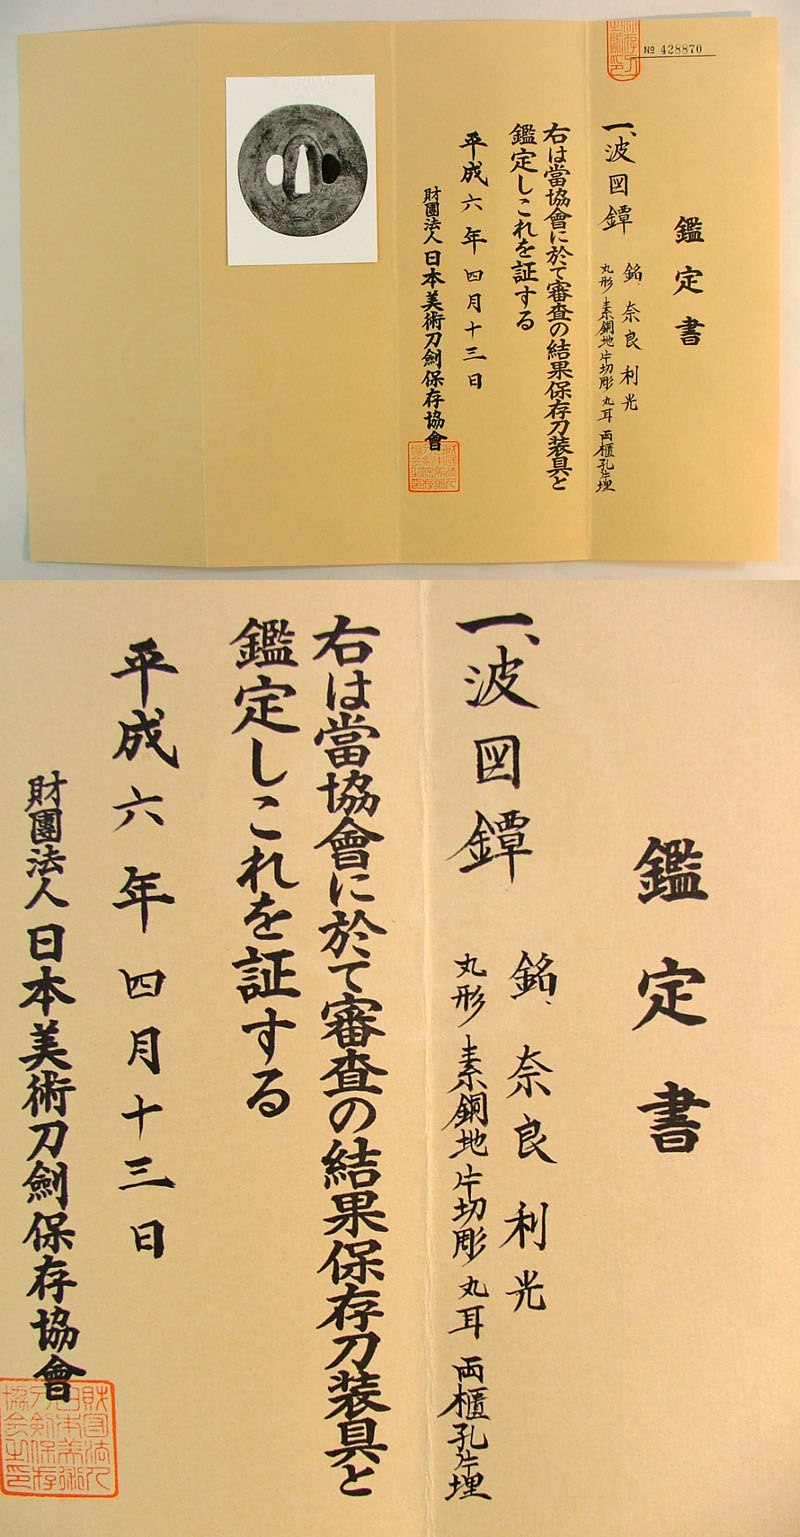 № 428870
鑑定書
一、波図鐔
銘、奈良利光
丸形 素銅地 片切彫 丸耳 両櫃孔片埋
右は當協會に於て審査の結果保存刀装具と
鑑定しこれを証する
平成六年四月十三日
財團法人日本美術刀劍保存協會
鑑定書
一、波図鐔
銘、奈良利光
丸形 素銅地 片切彫 丸耳 両櫃孔片埋
右は當協會に於て審査の結果保存刀装具と
鑑定しこれを証する
平成六年四月十三日
財團法人日本美術刀劍保存協會